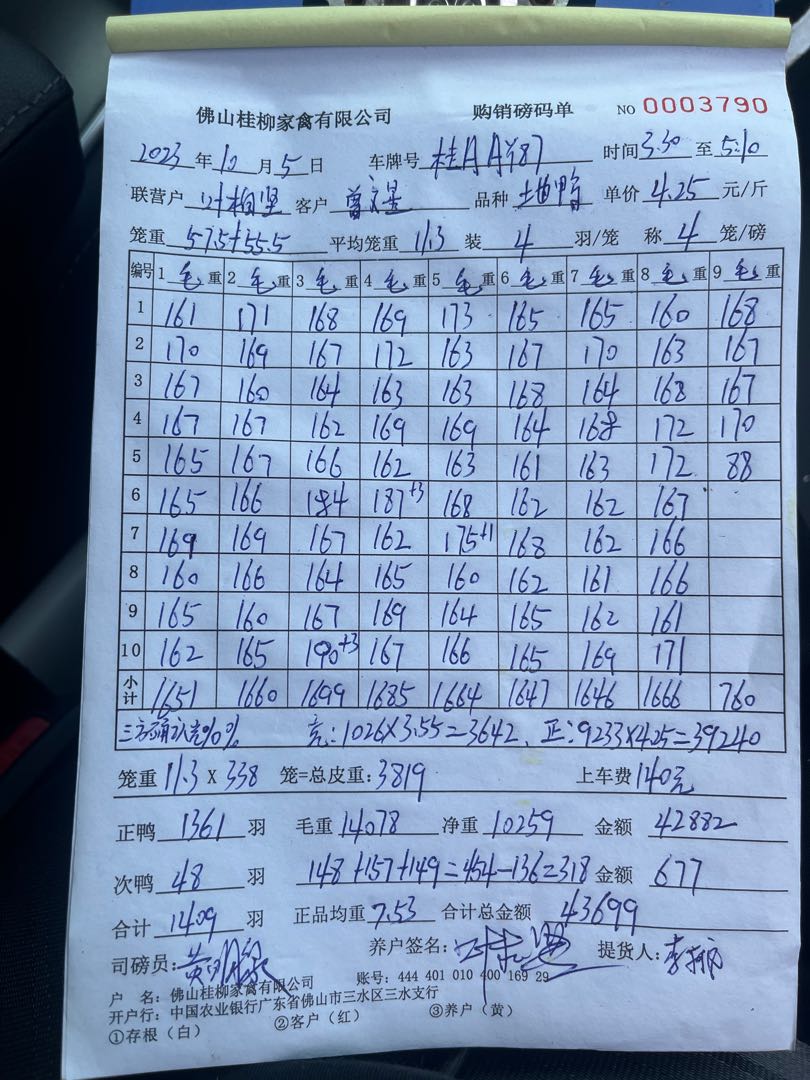 佛山桂柳家禽有限公司 购销磅码单 NO 0003790
2023 年 10 月 5 日 车牌号 桂A 时间 3:30 至 5:10
联营户 叶柏坚 客户 曾 品种 鸭 单价 4.25 元/斤
笼重 57.5+55.5 平均笼重 11.3 装 4 羽/笼 称 4 笼/磅
编号 1 毛 重 2 毛 重 3 毛 重 4 毛 重 5 毛 重 6 毛 重 7 毛 重 8 毛 重 9 毛 重
1 161 171 168 169 173 165 165 160 168
2 170 169 167 172 163 167 170 163 167
3 167 160 164 163 163 168 164 168 167
4 167 167 162 169 169 164 168 172 170
5 165 167 166 162 163 161 163 172 88
6 165 166 184 187+3 168 162 162 167
7 169 169 167 162 175+1 168 162 166
8 160 166 164 165 160 162 161 166
9 165 160 167 169 164 165 162 161
10 162 165 190+3 167 166 165 169 171
小计 1651 1660 1699 1685 1664 1647 1646 1666 760
三方确认 10% :1026×3.55=3642. 正:9233×4.25=39240
笼重 11.3 X 338 笼=总皮重:3819 上车费 140元
正鸭 1361 羽 毛重 14078 净重 10259 金额 42882
次鸭 48 羽 148+157+149=454-136=318 金额 677
合计 1409 羽 正品均重 7.53 合计总金额 43699
司磅员: 养户签名: 提货人:
户 名:佛山桂柳家禽有限公司 账号:444 401 010 400 169 29
开户行:中国农业银行广东省佛山市三水区三水支行
①存根(白) ②客户(红) ③养户(黄)